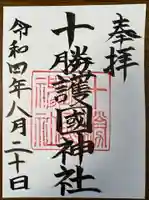 奉拝
十勝護國神社
令和四年八月二十日